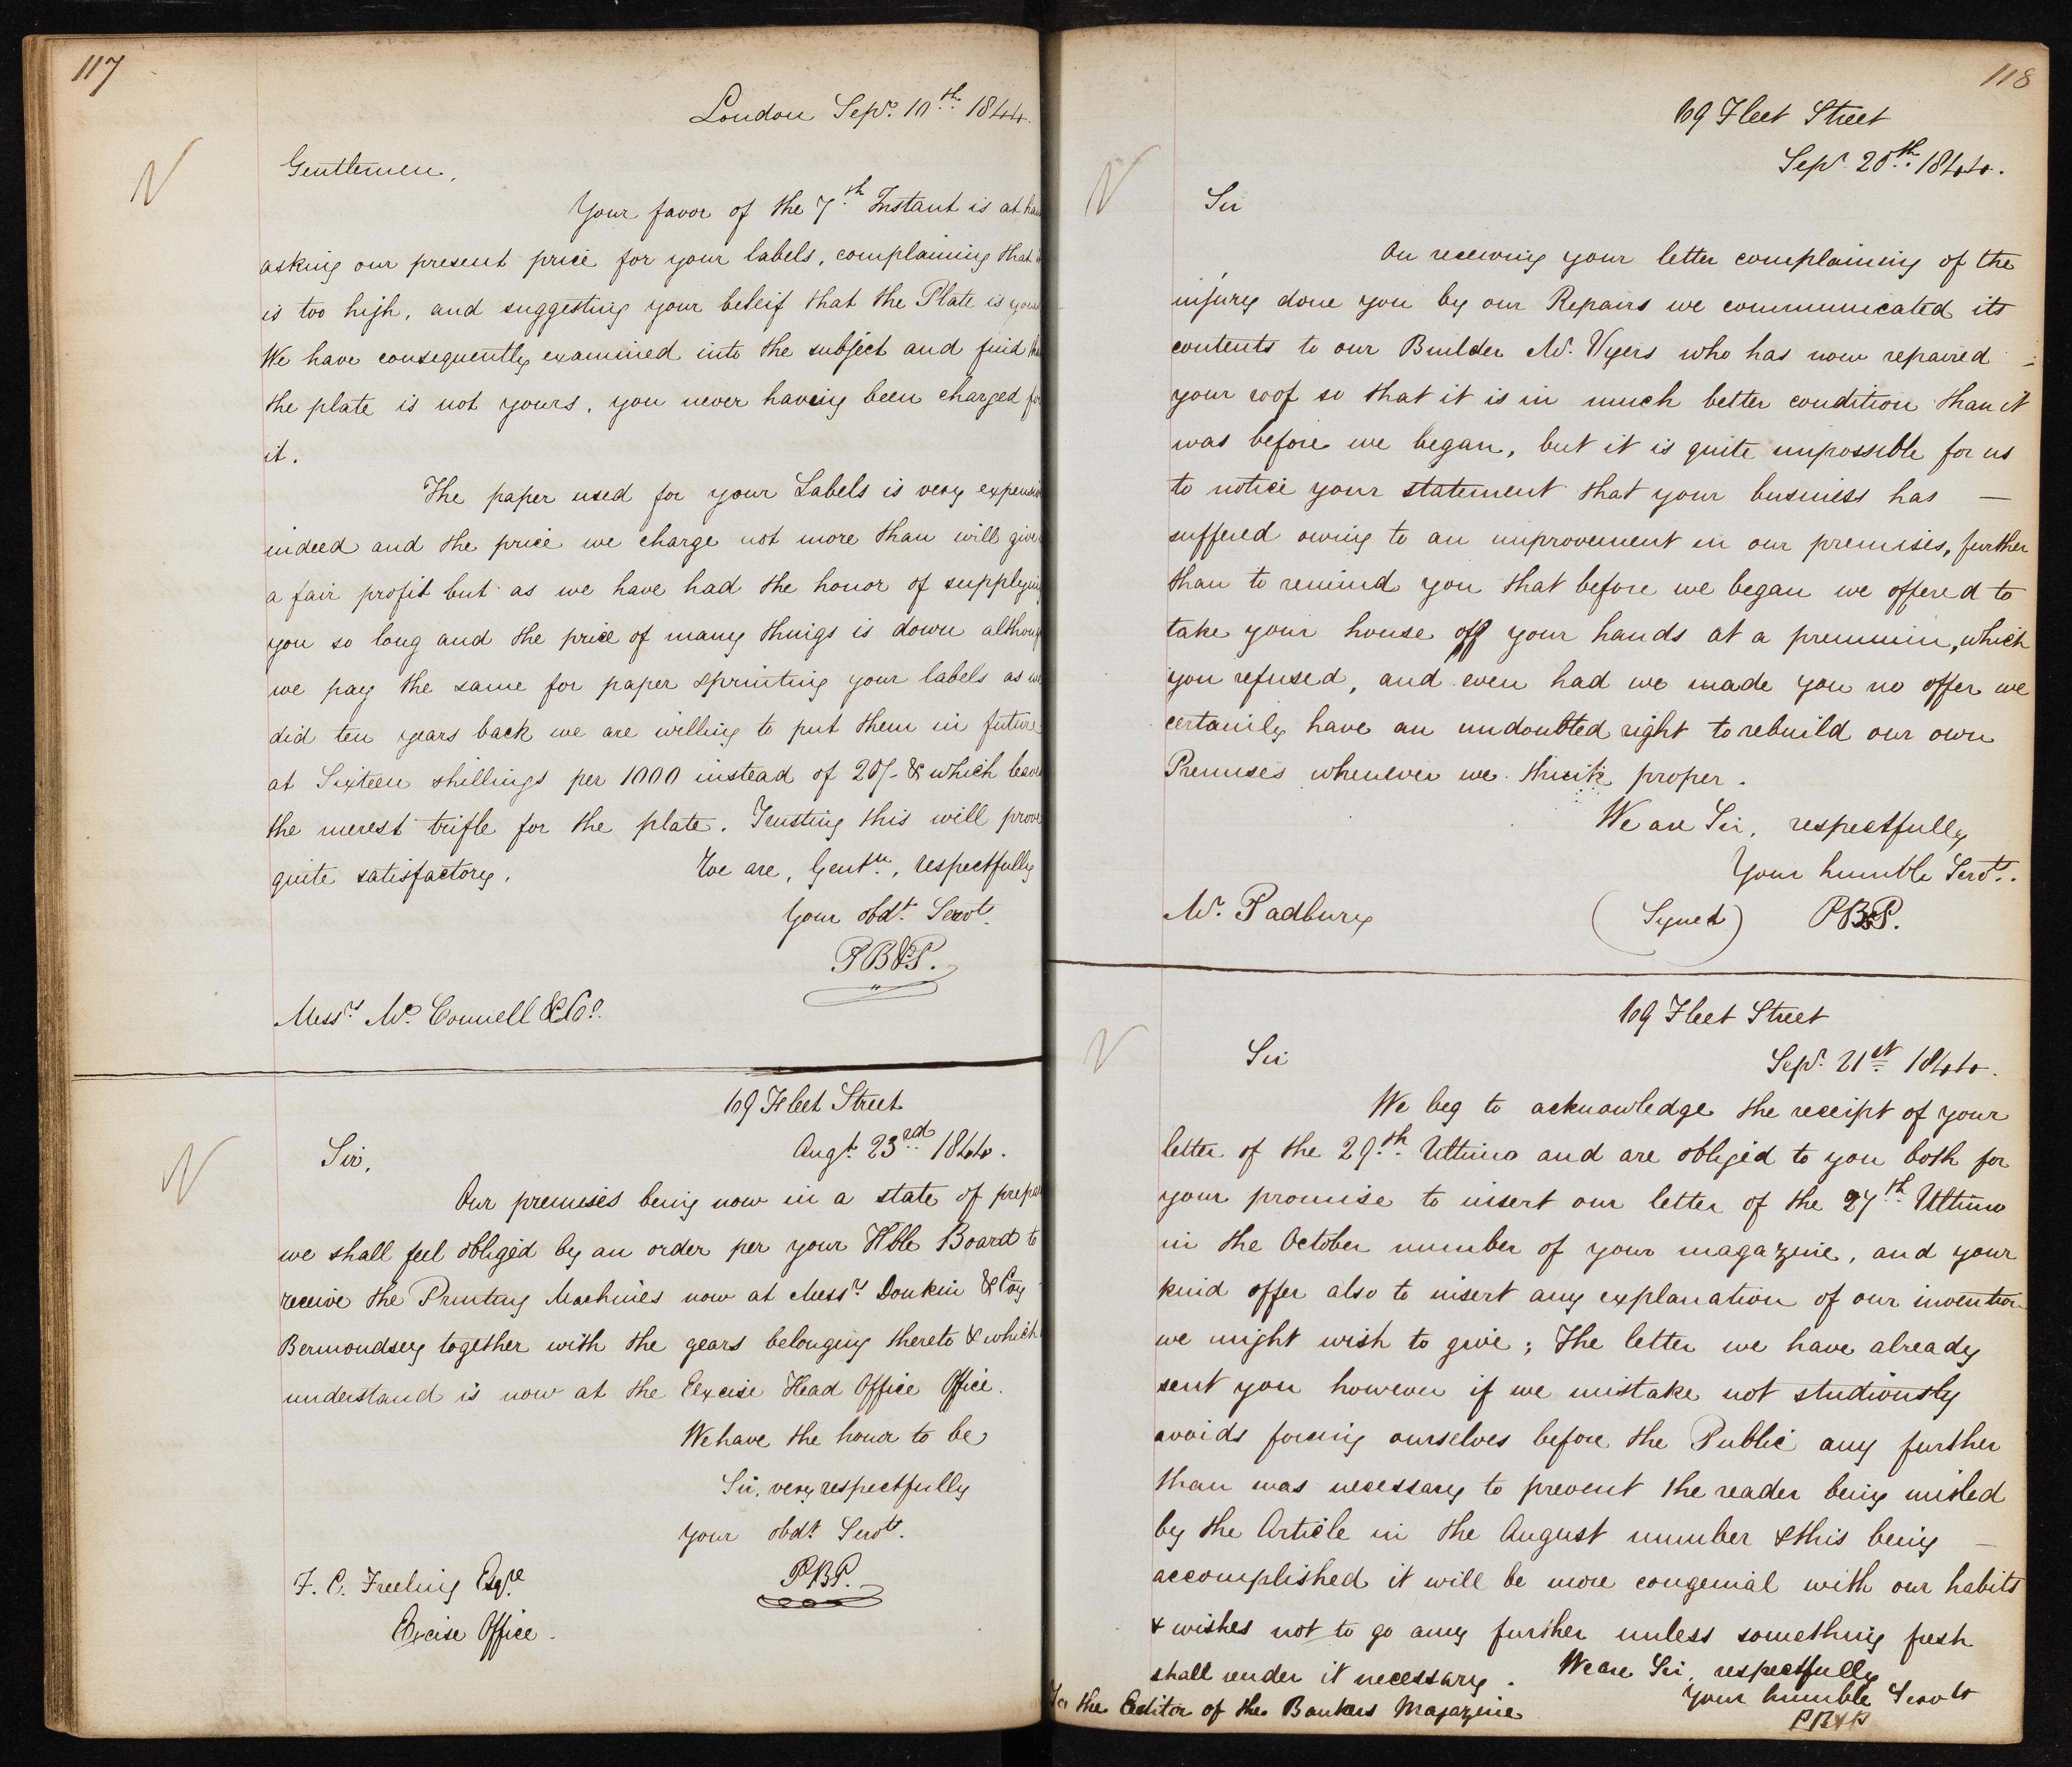 117
London Sepr. 10th 1844.
Gentlemen,
Your favor of the 7th Instant is at
asking our present price for your labels, complaining that
is too high, and suggesting your beleif that the Plate is
We have consequently examined into the subject and find
the plate is not yours, you never having been charged
it.
The paper used for your Labels is very
indeed and the price we charge not more than will give
a fair profit but as we have had the honor of
you so long and the price of many things is down
we pay the same for paper & printing your labels as
did ten years back we are willing to put them in future
at Sixteen shillings per 1000 instead of 20/- & which
the merest trifle for the plate. Trusting this will prove
quite satisfactory.
We are, Gentn., respectfully
Your obdt. Servts.
P B & P.
Messrs. Mc. Connell & Co.
69 Fleet Street
Augt. 23rd 1844.
Sir,
Our premises being now in a state of
we shall feel obliged by an order per your Hble Board to
receive the Printing Machines now at Messrs Donkin & Coy
Bermondsey together with the gears belonging thereto & which
understand is now at the Excise Head Office Office.
We have the honor to be
Sir, very respectfully
Your obdt. Servts.
PBP.
F. C. Freeling Esqre
Excise Office.
118
69 Fleet Street
Sepr. 20th. 1844.
Sir
On receiving your letter complaining of the
injury done you by our Repairs we communicated its
contents to our Builder Mr. Vyers who has now repaired
your roof so that it is in much better condition than it
was before we began, but it is quite impossible for us
to notice your statement that your business has —
suffered owing to an improvement in our premises, further
than to remind you that before we began we offered to
take your house off your hands at a premium, which
you refused, and even had we made you no offer we
certainly have an undoubted right to rebuild our own
Premises whenever we think proper.
We are Sir, respectfully
Your humble Servts.
Mr. Padbury
(Signed) PB&P.
69 Fleet Street
Sir
Sepr. 21st 1844.
We beg to acknowledge the receipt of your
letter of the 29th. Ultimo and are obliged to you both for
your promise to insert our letter of the 27th. Ultimo
in the October number of your magazine, and your
kind offer also to insert any explanation of our invention
we might wish to give; The letter we have already
sent you however if we mistake not studiously
avoids forcing ourselves before the Public any further
than was necessary to prevent the reader being misled
by the Article in the August number & this being —
accomplished it will be more congenial with our habits
& wishes not to go any further unless something fresh
shall render it necessary. We are Sir, respectfully
Your humble Servts
To the Editor of the Bankers Magazine
PB&P